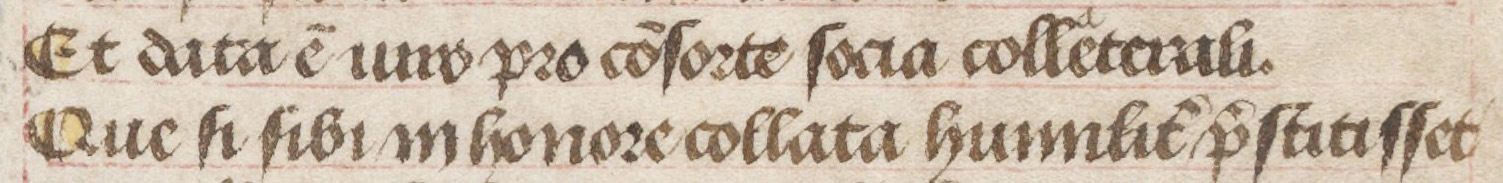 Et data ē uiro pro cōsorte socia collateralі.
Que si sibi in honore collata humilit̄ p̄stitisset